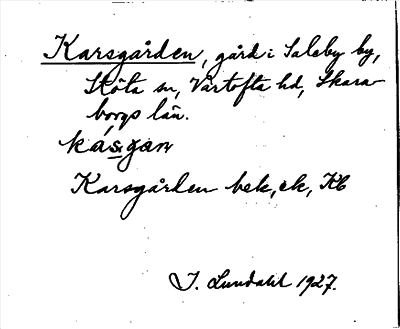 Karsgården, gård i Saleby by,
Sköta sn, Vartofta hd, Skara-
borgs län.
kásgan
Karsgården bek, ek, Kb
J. Lundahl 1927.